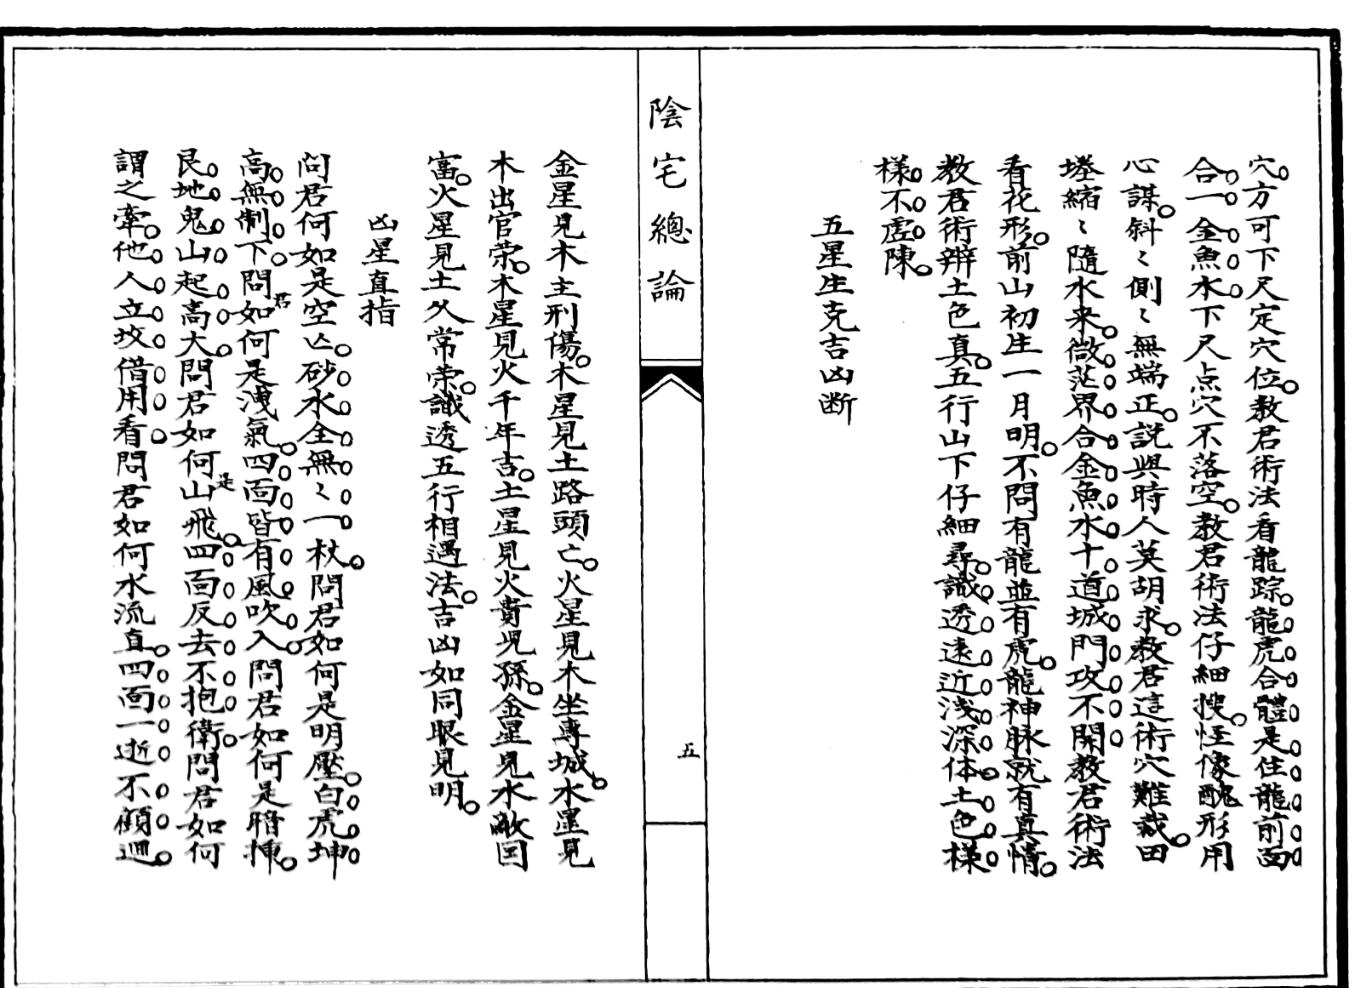 穴。方可下尺定穴位。教君術法看龍踪。龍虎合體是住龍前面
合一金魚水。下尺点穴不落空。教君術法仔細搜。怪像醜形用
心謀。斜〻側〻無端正。説與時人莫胡求。教君這術穴難裁。田
塍縮〻隨水来。微茫界合金魚水。十道城門攻不開教君術法
看花形。前山初生一月明。不問有龍並有虎。龍神脉就有真情。
教君術辨土色真。五行山下仔細尋。識透遠近浅深体土色樣
樣不虚陳。
五星生克吉凶断
陰宅總論
五
金星見木主刑傷。木星見土路頭亡。火星見木坐專城。水星見
木出官荣。木星見火千年吉。土星見火貴児孫。金星見水敵国
富。火星見土久常荣。識透五行相遇法。吉凶如同眼見明。
凶星直指
問君何如是空亡。砂水全無〻一杖。問君如何是明壓。白虎坤
高無制下。問君如何是洩氣。四面皆有風吹入。問君如何是暗揷。
艮地鬼山起高大。問君如何是山飛。四面反去不抱衛。問君如何
謂之牽。他人立坟借用看。問君如何水流直。四面一逝不顧廻。